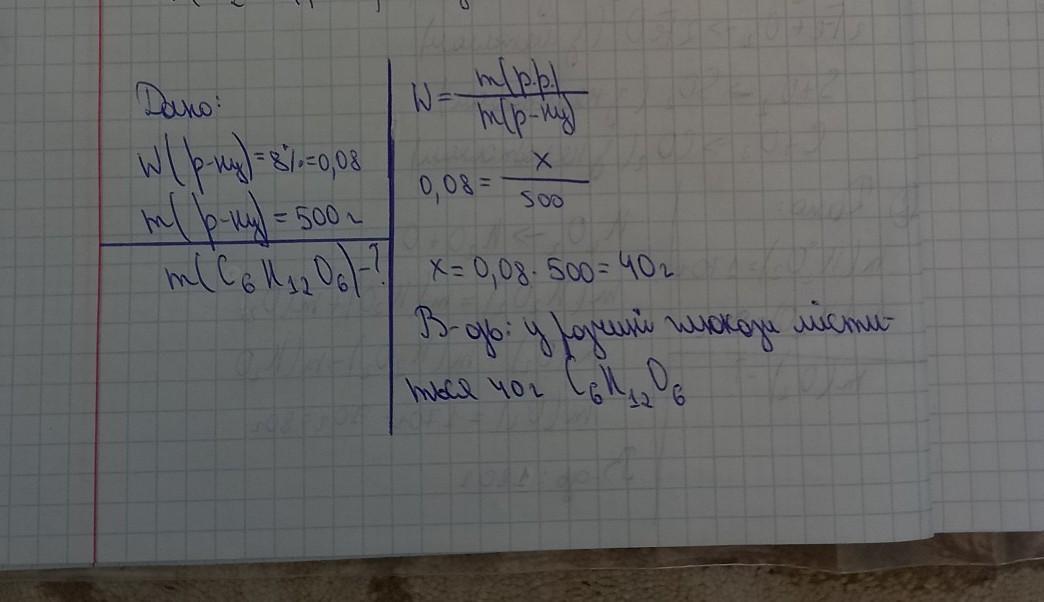 Дано:
W(р-ну)=8%=0,08
m(р-ну)=500г
m(C₆H₁₂O₆)-?
W = m(р.р.) / m(р-ну)
0,08 = x / 500
x = 0,08 · 500 = 40г
В-дь: у розчині глюкози місти-
ться 40г C₆H₁₂O₆